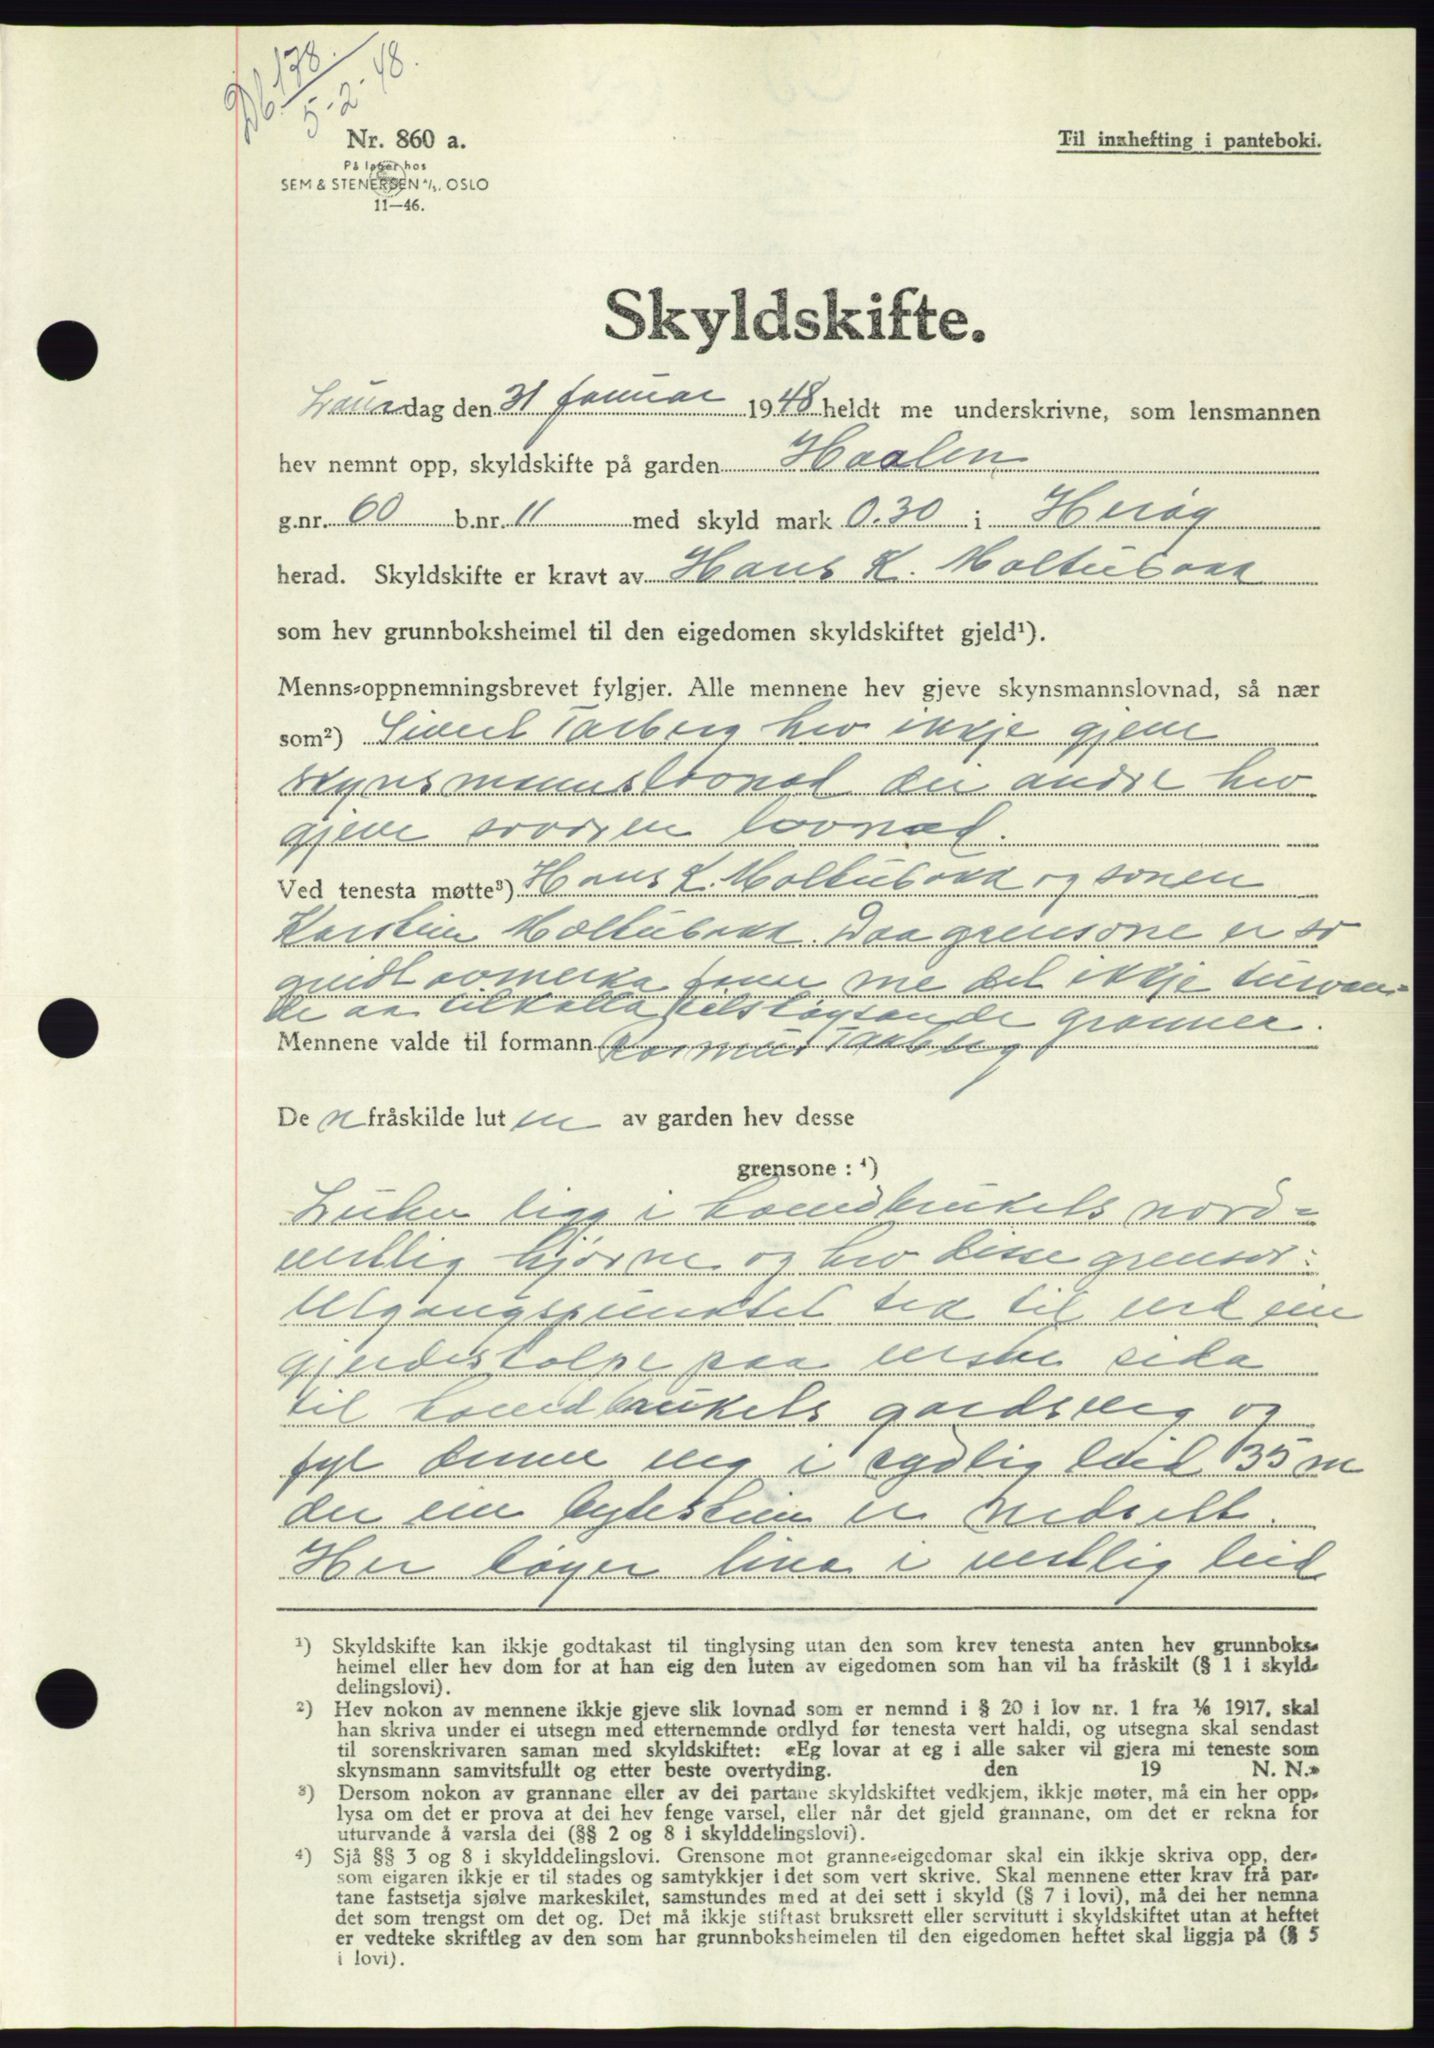 Db. 178.
5-2-48.
Nr. 860 a.
På lager hos
SEM & STENERSEN A/S. OSLO
11—46.
Til innhefting i panteboki.
Skyldskifte.
Laurdag den 31 januar 1948 heldt me underskrivne, som lensmannen
hev nemnt opp, skyldskifte på garden Haalen
g.nr. 60 b.nr. 11 med skyld mark 0.30 i Herøy
herad. Skyldskifte er kravt av Hans K. Moltubakk
som hev grunnboksheimel til den eigedomen skyldskiftet gjeld¹).
Menns-oppnemningsbrevet fylgjer. Alle mennene hev gjeve skynsmannslovnad, så nær
som²) Sivert Tarberg hev ikkje gjeve
skynsmannslovnad dei andre hev
gjeve lovnad.
Ved tenesta møtte³) Hans K. Moltubakk og sonen
Karstein Moltubakk. Daa grensone er so
godt avmerka finn me det ikkje turvan-
de aa tilkalla tilstøytande granner.
Mennene valde til formann Rasmus Tarberg
De n fråskilde lut en av garden hev desse
grensone: ⁴)
Luten ligg i hovudbrukets nord-
vestlig hjørne og hev disse grensor:
Utgangspunktet tek til ved ein
gjerdestolpe paa vestre sida
til hovudbrukets gardsveg og
fyl denne veg i sydlig leid 35 m
der ein bytestein er nedsett.
Her bøyer lina i vestlig leid
¹) Skyldskifte kan ikkje godtakast til tinglysing utan den som krev tenesta anten hev grunnboks-
heimel eller hev dom for at han eig den luten av eigedomen som han vil ha fråskilt (§ 1 i skyld-
delingslovi).
²) Hev nokon av mennene ikkje gjeve slik lovnad som er nemnd i § 20 i lov nr. 1 fra 1/6 1917, skal
han skriva under ei utsegn med etternemnde ordlyd før tenesta vert haldi, og utsegna skal sendast
til sorenskrivaren saman med skyldskiftet: «Eg lovar at eg i alle saker vil gjera mi teneste som
skynsmann samvitsfullt og etter beste overtyding. den 19 N. N.»
³) Dersom nokon av grannane eller av dei partane skyldskiftet vedkjem, ikkje møter, må ein her opp-
lysa om det er prova at dei hev fenge varsel, eller når det gjeld grannane, om det er rekna for
uturvande å varsla dei (§§ 2 og 8 i skylddelingslovi).
⁴) Sjå §§ 3 og 8 i skylddelingslovi. Grensone mot granne-eigedomar skal ein ikkje skriva opp, der-
som eigaren ikkje er til stades og samtykkjer i det som vert skrive. Skal mennene etter krav frå par-
tane fastsetja sjølve markeskilet, samstundes med at dei sett i skyld (§ 7 i lovi), må dei her nemna
det som trengst om det og. Det må ikkje stiftast bruksrett eller servitutt i skyldskiftet utan at heftet
er vedteke skriftleg av den som har grunnboksheimelen til den eigedomen heftet skal liggja på (§ 5
i lovi).